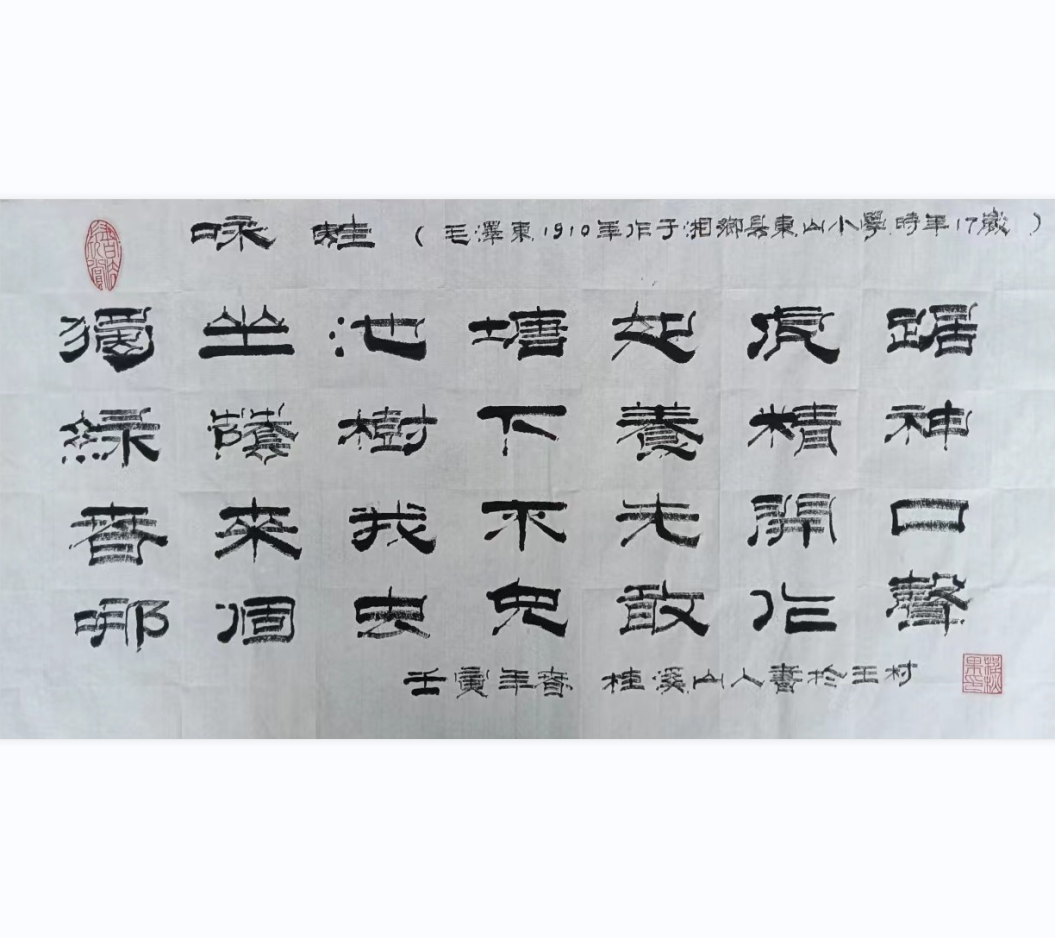 咏蛙（毛澤東1910年作于湘鄉县東山小學時年17歲）
獨坐池塘如虎踞
綠蔭樹下養精神
春來我不先開口
哪個虫兒敢作聲
壬寅年春 桂溪山人書於王村